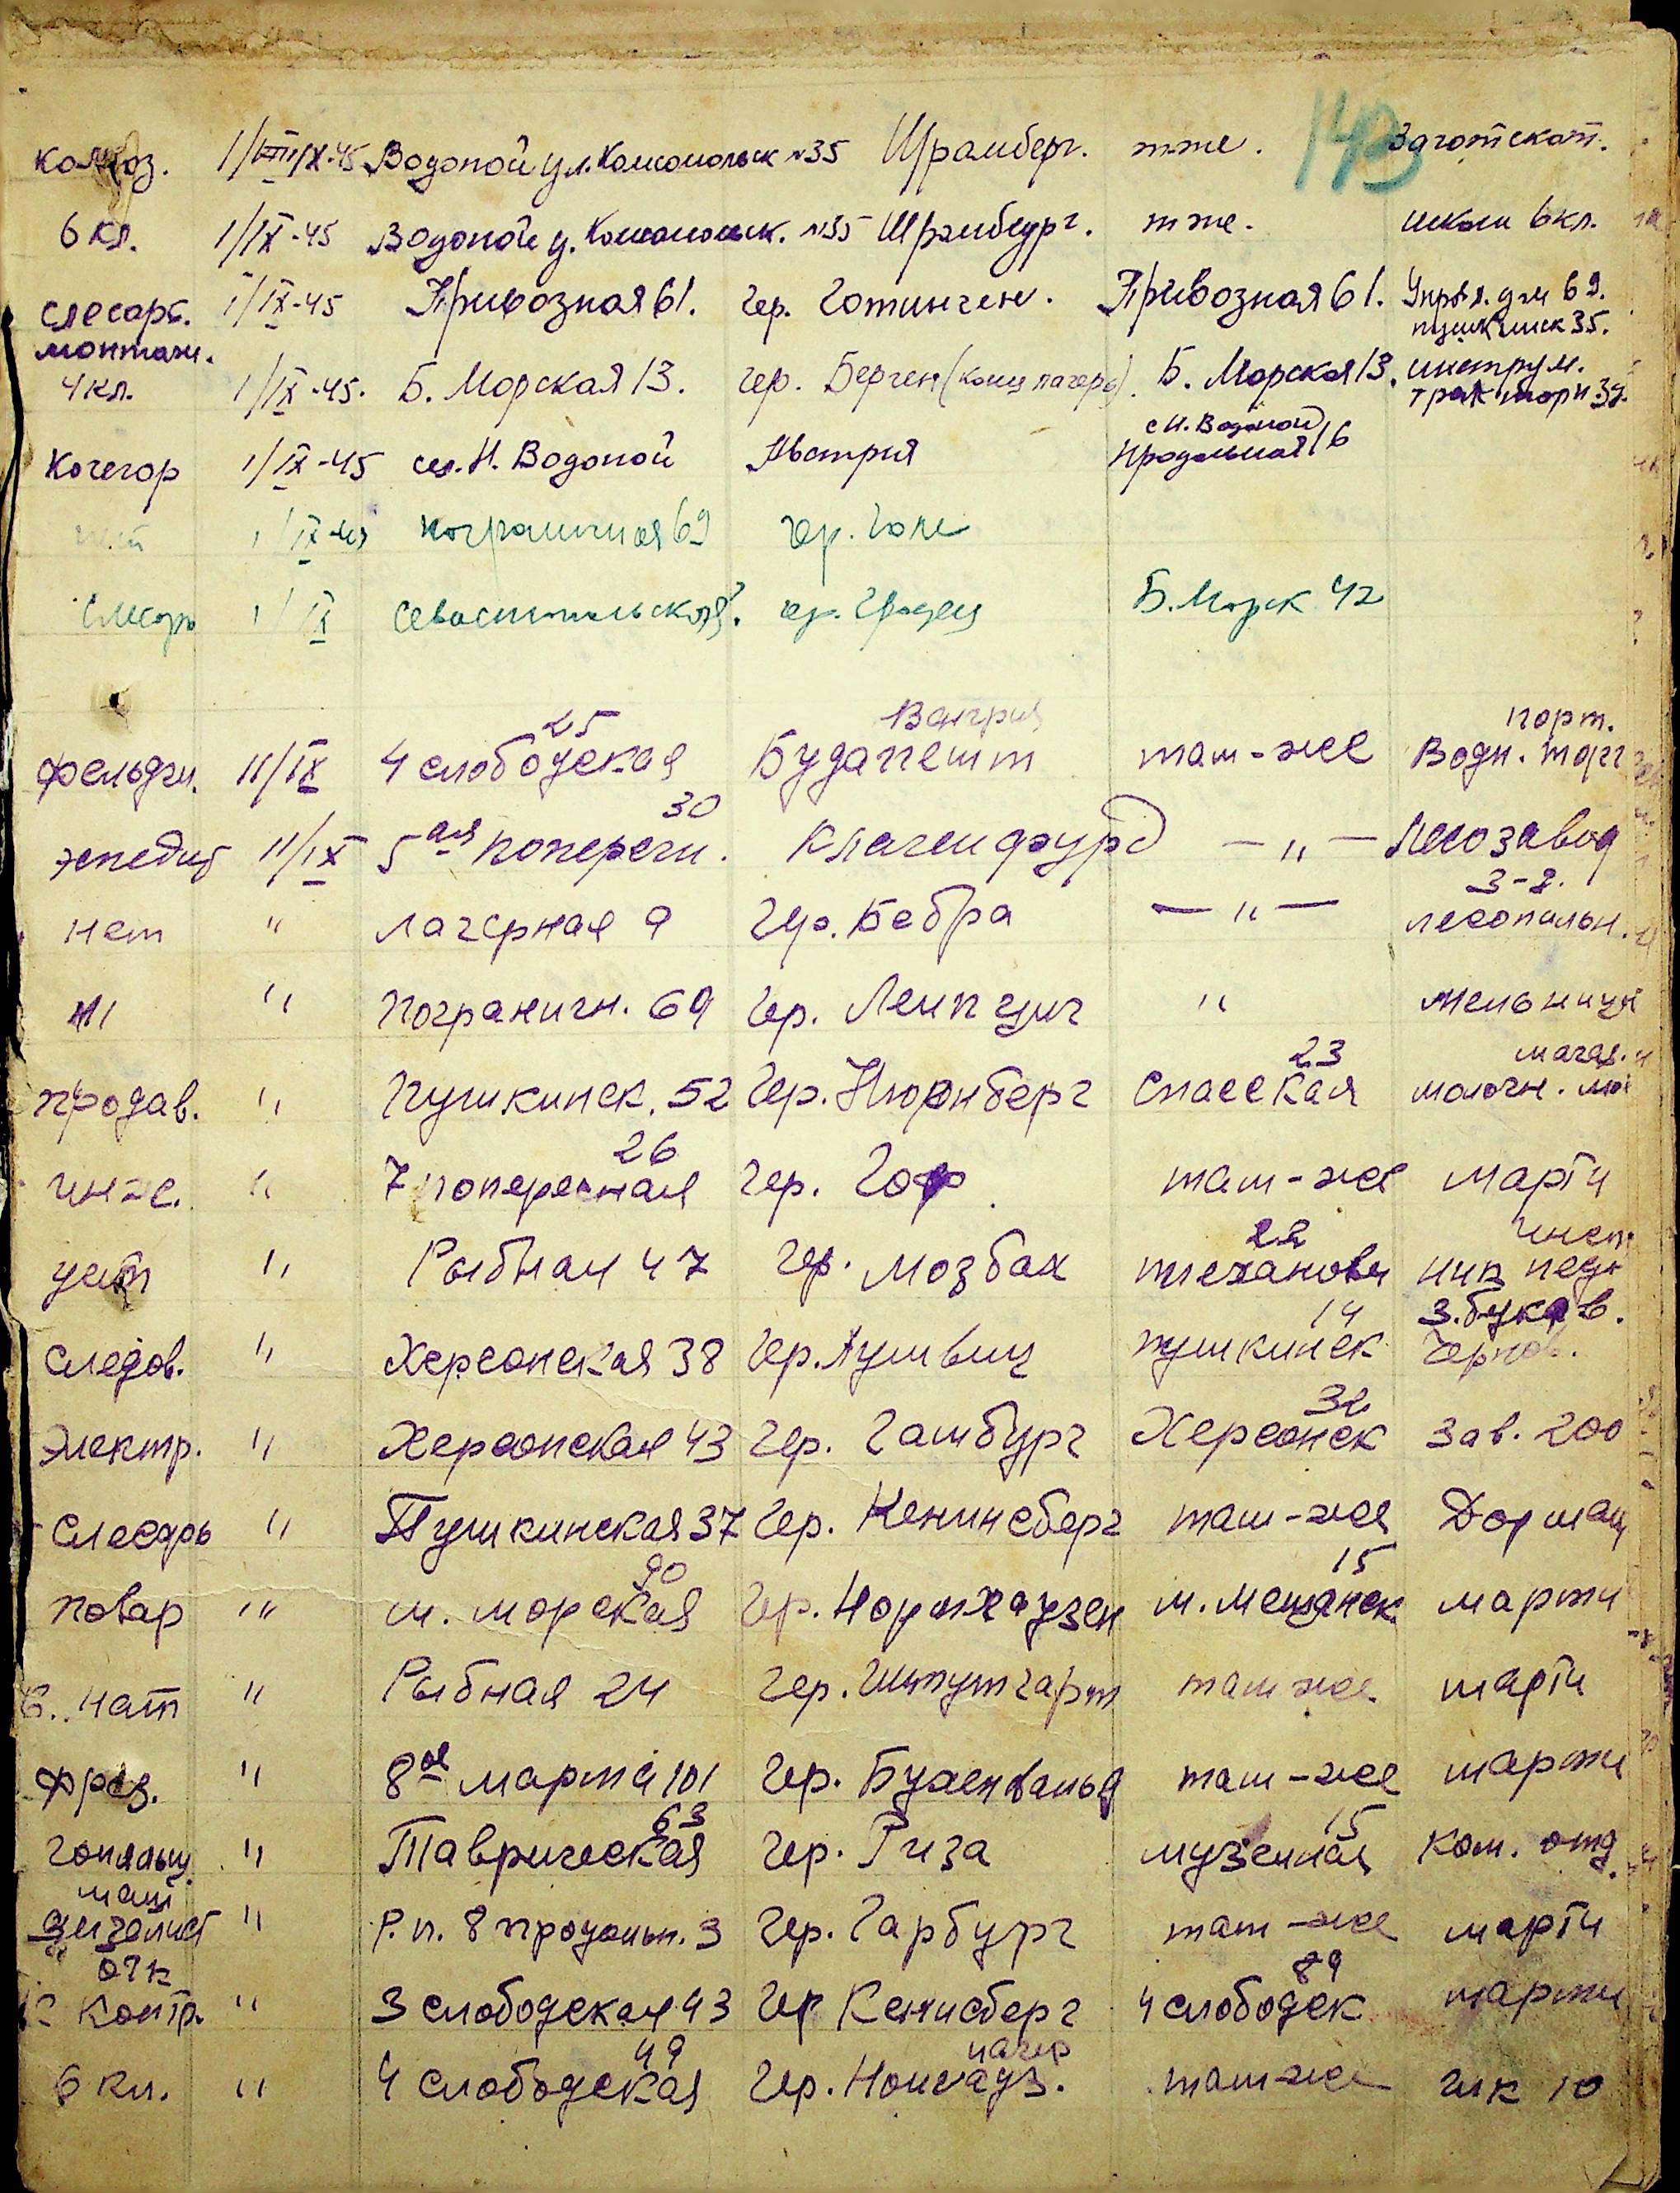 143
колхоз. 1/VIII/IX-45 Водопой ул. Комсомольск №35 Шрамберг. тже. Заготскот.
6 кл. 1/IX-45 Водопой у. Комсомольск. №35 Шрамбург. тже. школа 6 кл.
слесарь. 1/IX-45 Привозная 61. гер. Готинген. Привозная 61. Упр. 69.
монтаж. пушкинск 35.
4 кл. 1/IX-45. Б. Морская 13. гер. Берген (конц лагерь). Б. Морская 13. инструм.
трактори
с Н. Водопой
Кочегар 1/IX-45 сел. Н. Водопой Австрия Продольная 16
1/IX-45 пограничная 69 гер.
слесарь 1/IX севастопольская гер. Б. Морск 42
25 Венгрия порт.
фельдш. 11/IX 4 слободская Будапешт там-же Водн. торг
30
экспедит 11/IX 5ая поперечн. Клагенфурд —"— Лесозавод
3-д.
нет " Лагерная 9 Гер. Бебра —"— лесопильн.
" Пограничн. 69 Гер. Лейпциг " мельница
23 магаз.
продав. " Пушкинск. 52 Гер. Нюрнберг Спасская молочн.
26
инж. " 7 поперечная Гер. Гоф там-же марти
22 инст.
" Рыбная 47 Гер. мозбах плеханов ник пед
14 з. букв.
следов. " Херсонская 38 Гер. Аушвиц пушкинск
32
электр. " Херсонская 43 Гер. Гамбург Херсонск зав. 200
Слесарь " Пушкинская 37 Гер. Кенинсберг там-же Дормаш
90 15
повар " м. морская Гер. Нортхаузен м. мещанск марти
" Рыбная 24 Гер. Штутгарт там же марти
фрез. " 8ое марта 101 Гер. Бухенвальд там-же марти
63 15
" Таврическая Гер. Риза музейная ком. отд.
маш
дизелист " Р. п. 8 продольн. 3 Гер. Гарбург там-же марти
отк 89
контр. " 3 слободская 43 Гер Кенисберг 4 слободск марти
49 лагер
6 кл. " 4 слободская Гер. там-же